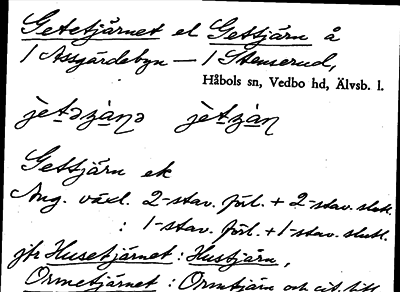 Getetjärnet el Gettjärn å
1 Assgärdebyn — 1 Stenserud,
Håbols sn, Vedbo hd, Älvsb. l.
Gettjärn ek
Ang. växl. 2-stav. förl. + 2-stav. slutl.
: 1-stav. förl. + 1-stav. slutl.
jfr Husetjärnet : Hustjärn,
Ormetjärnet : Ormtjärn och cit. litt